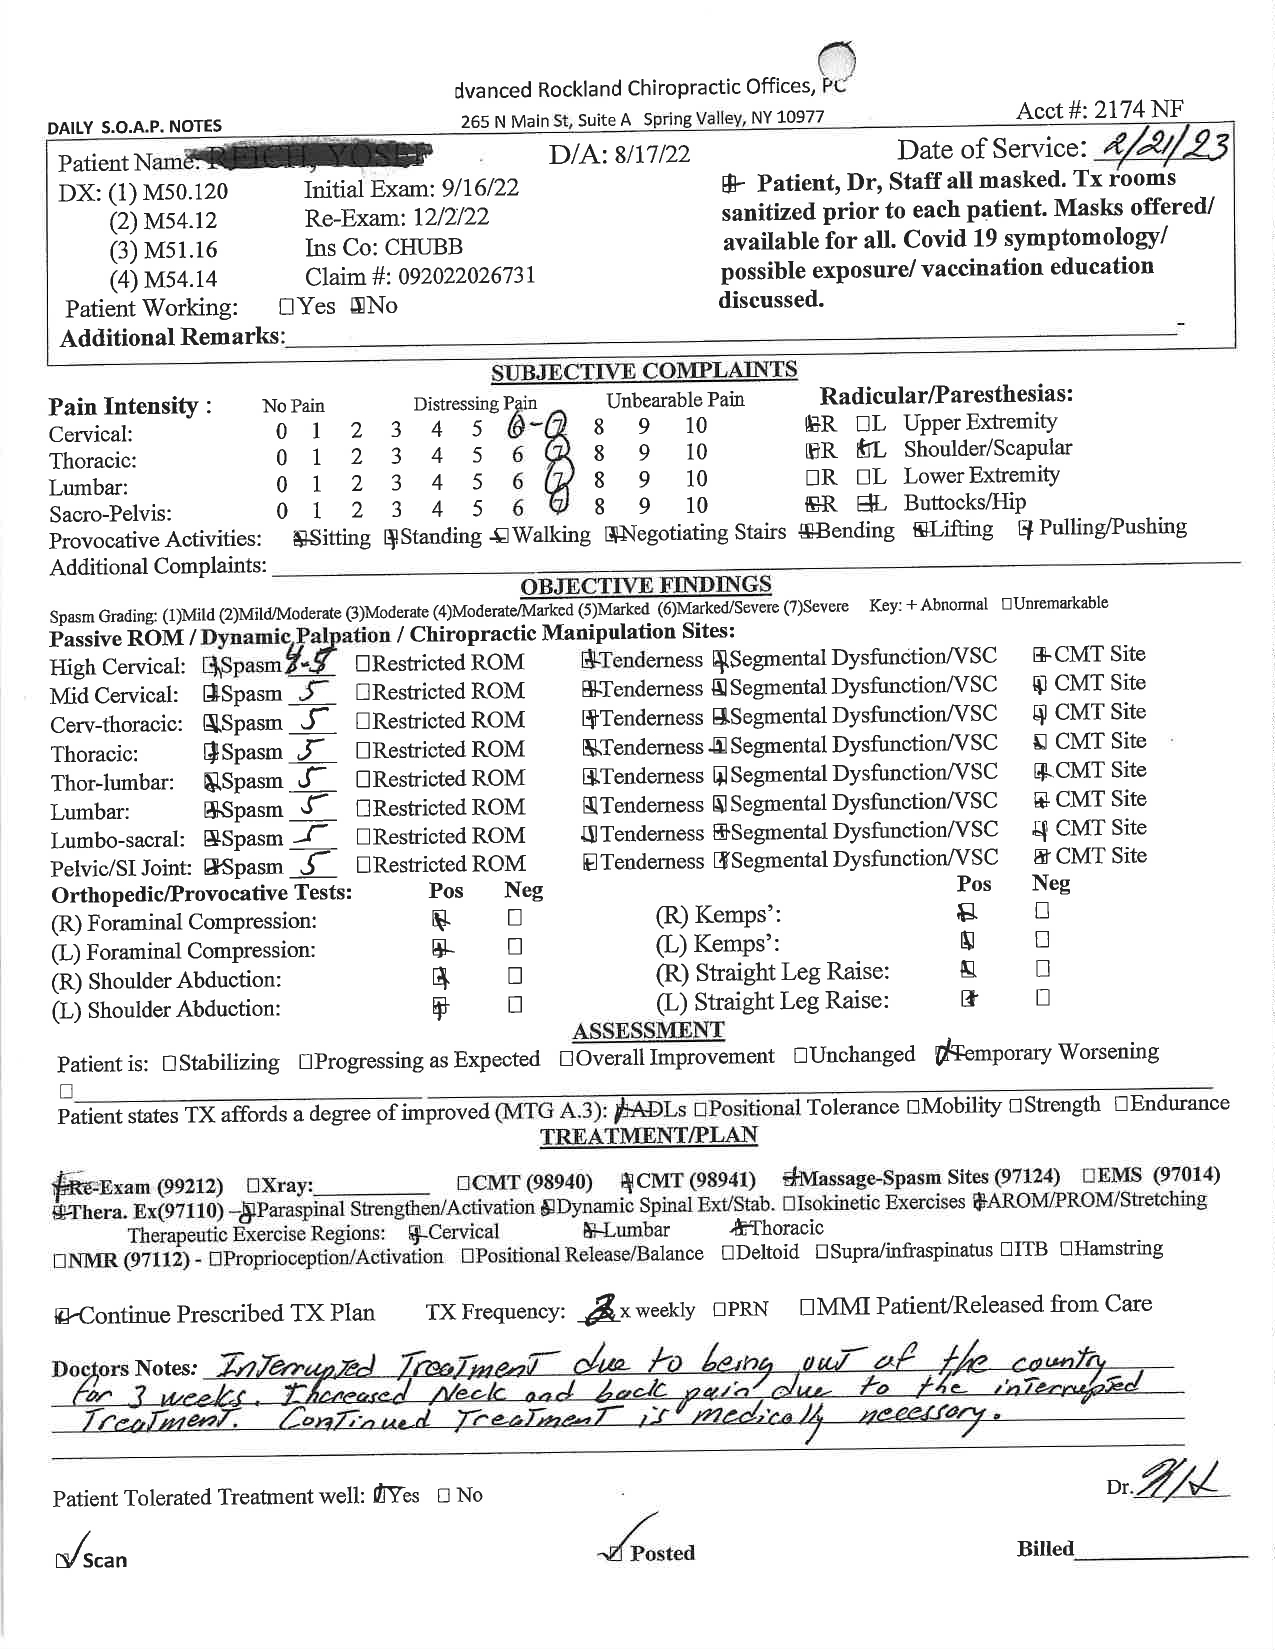 dvanced Rockland Chiropractic Offices, PC
DAILY S.O.A.P. NOTES 265 N Main St, Suite A Spring Valley, NY 10977 Acct #: 2174 NF
Patient Name: D/A: 8/17/22 Date of Service: 2/21/23
DX: (1) M50.120 Initial Exam: 9/16/22 Patient, Dr, Staff all masked. Tx rooms
(2) M54.12 Re-Exam: 12/2/22 sanitized prior to each patient. Masks offered/
(3) M51.16 Ins Co: CHUBB available for all. Covid 19 symptomology/
(4) M54.14 Claim #: 092022026731 possible exposure/ vaccination education
Patient Working: □Yes ☒No discussed.
Additional Remarks:
SUBJECTIVE COMPLAINTS
Pain Intensity : No Pain Distressing Pain Unbearable Pain Radicular/Paresthesias:
Cervical: 0 1 2 3 4 5 6-7 8 9 10 ☒R □L Upper Extremity
Thoracic: 0 1 2 3 4 5 6 7 8 9 10 ☒R ☒L Shoulder/Scapular
Lumbar: 0 1 2 3 4 5 6 7 8 9 10 □R □L Lower Extremity
Sacro-Pelvis: 0 1 2 3 4 5 6 7 8 9 10 ☒R ☒L Buttocks/Hip
Provocative Activities: ☒Sitting ☒Standing ☒Walking ☒Negotiating Stairs ☒Bending ☒Lifting ☒Pulling/Pushing
Additional Complaints:
OBJECTIVE FINDINGS
Spasm Grading: (1)Mild (2)Mild/Moderate (3)Moderate (4)Moderate/Marked (5)Marked (6)Marked/Severe (7)Severe Key: + Abnormal □Unremarkable
Passive ROM / Dynamic Palpation / Chiropractic Manipulation Sites:
High Cervical: ☒Spasm 4-5 □Restricted ROM ☒Tenderness ☒Segmental Dysfunction/VSC ☒CMT Site
Mid Cervical: ☒Spasm 5 □Restricted ROM ☒Tenderness ☒Segmental Dysfunction/VSC ☒CMT Site
Cerv-thoracic: ☒Spasm 5 □Restricted ROM ☒Tenderness ☒Segmental Dysfunction/VSC ☒CMT Site
Thoracic: ☒Spasm 5 □Restricted ROM ☒Tenderness ☒Segmental Dysfunction/VSC ☒CMT Site
Thor-lumbar: ☒Spasm 5 □Restricted ROM ☒Tenderness ☒Segmental Dysfunction/VSC ☒CMT Site
Lumbar: ☒Spasm 5 □Restricted ROM ☒Tenderness ☒Segmental Dysfunction/VSC ☒CMT Site
Lumbo-sacral: ☒Spasm 5 □Restricted ROM ☒Tenderness ☒Segmental Dysfunction/VSC ☒CMT Site
Pelvic/SI Joint: ☒Spasm 5 □Restricted ROM ☒Tenderness ☒Segmental Dysfunction/VSC ☒CMT Site
Orthopedic/Provocative Tests: Pos Neg Pos Neg
(R) Foraminal Compression: ☒ □ (R) Kemps': ☒ □
(L) Foraminal Compression: ☒ □ (L) Kemps': ☒ □
(R) Shoulder Abduction: ☒ □ (R) Straight Leg Raise: ☒ □
(L) Shoulder Abduction: ☒ □ (L) Straight Leg Raise: ☒ □
ASSESSMENT
Patient is: □Stabilizing □Progressing as Expected □Overall Improvement □Unchanged ☒Temporary Worsening
□
Patient states TX affords a degree of improved (MTG A.3): ☒ADLs □Positional Tolerance □Mobility □Strength □Endurance
TREATMENT/PLAN
☒Re-Exam (99212) □Xray: □CMT (98940) ☒CMT (98941) ☒Massage-Spasm Sites (97124) □EMS (97014)
☒Thera. Ex(97110) – ☒Paraspinal Strengthen/Activation ☒Dynamic Spinal Ext/Stab. □Isokinetic Exercises ☒AROM/PROM/Stretching
Therapeutic Exercise Regions: ☒Cervical ☒Lumbar ☒Thoracic
□NMR (97112) - □Proprioception/Activation □Positional Release/Balance □Deltoid □Supra/infraspinatus □ITB □Hamstring
☒Continue Prescribed TX Plan TX Frequency: x weekly □PRN □MMI Patient/Released from Care
Doctors Notes: Interrupted Treatment due to being out of the country
for 3 weeks. Increased Neck and back pain due to the interrupted
Treatment. Continued Treatment is medically necessary.
Patient Tolerated Treatment well: ☒Yes □ No Dr.
☒ Scan ☒ Posted Billed